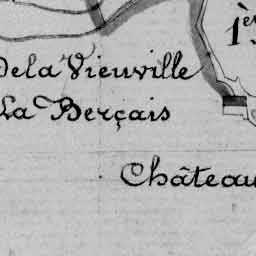 1er
de la Vieuville
La Berçais
Château